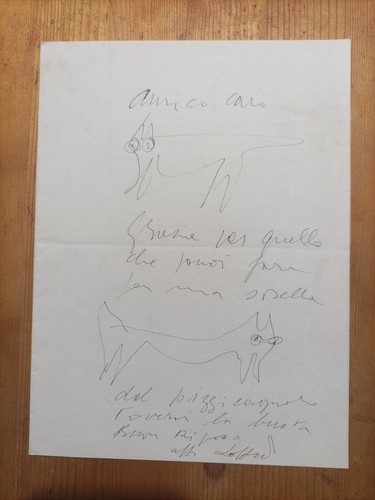 amico caro
Grazie per quello
che puoi fare
per mia sorella
dal
troverai la busta
Buon Riposo
aff